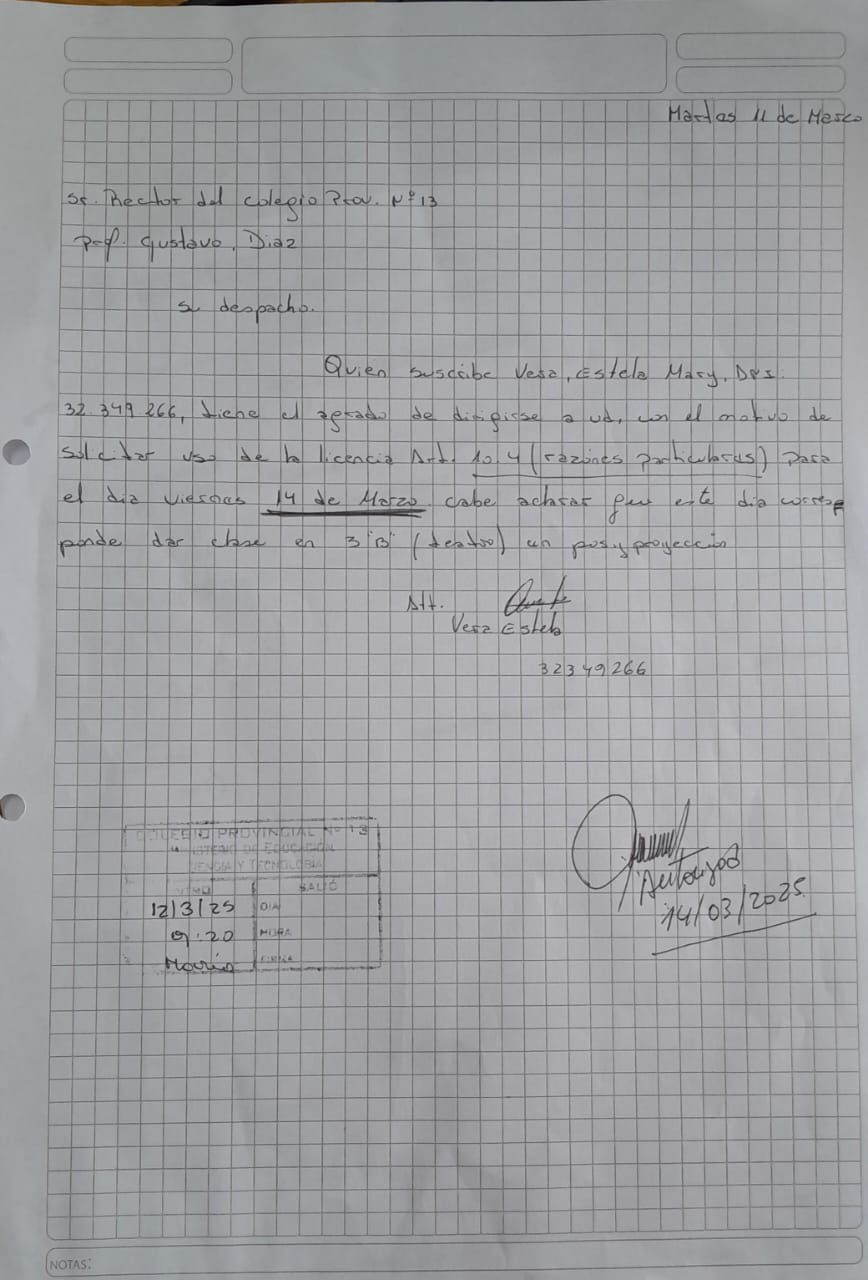 Martes 11 de Marzo
Sr. Rector del Colegio Prov. Nº 13
Prof. Gustavo, Diaz
su despacho.
Quien suscribe Vera, Estela Mary, D.N.I.
32.349.266, tiene el agrado de dirigirse a ud, con el motivo de
solicitar uso de la licencia Art. 10.4 (razones particulares) para
el dia viernes 14 de Marzo cabe aclarar que este dia corres
ponde dar clase en 3 "B" (teatro) un pos y proyección
Att.
Vera Estela
32349266
COLEGIO PROVINCIAL Nº 13
MINISTERIO DE EDUCACION
CIENCIA Y TECNOLOGIA
SALIÓ
12/3/25 DIA
9:20 HORA
María FIRMA
Autorizado
14/03/2025
NOTAS: